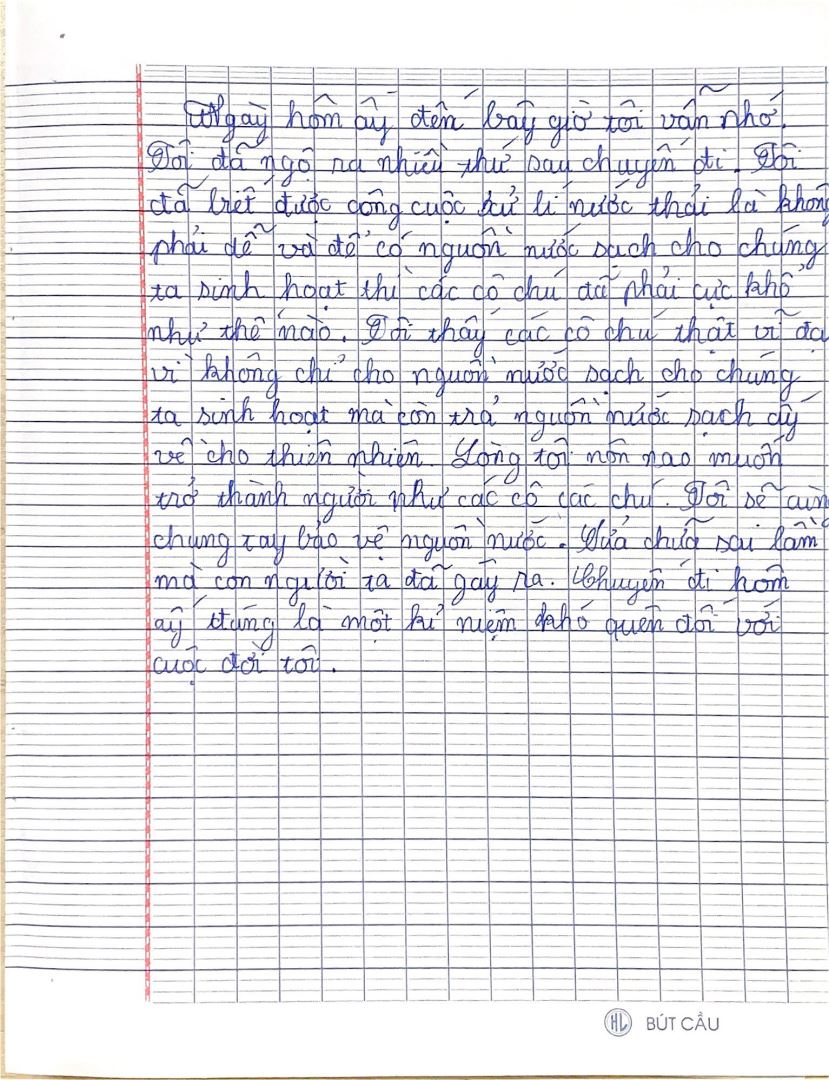 Ngày hôm ấy đến bây giờ tôi vẫn nhớ.
Tôi đã ngộ ra nhiều thứ sau chuyến đi. Tôi
đã biết được công cuộc xử lí nước thải là không
phải dễ và để có nguồn nước sạch cho chúng
ta sinh hoạt thì các cô chú đã phải cực khổ
như thế nào. Tôi thấy các cô chú thật vĩ đại
vì không chỉ cho nguồn nước sạch cho chúng
ta sinh hoạt mà còn trả nguồn nước sạch ấy
về cho thiên nhiên. Lòng tôi nôn nao muốn
trở thành người như các cô các chú. Tôi sẽ cùng
chung tay bảo vệ nguồn nước. Sửa chữa sai lầm
mà con người ta đã gây ra. Chuyến đi hôm
ấy đúng là một kỉ niệm khó quên đối với
cuộc đời tôi.
HL BÚT CẦU